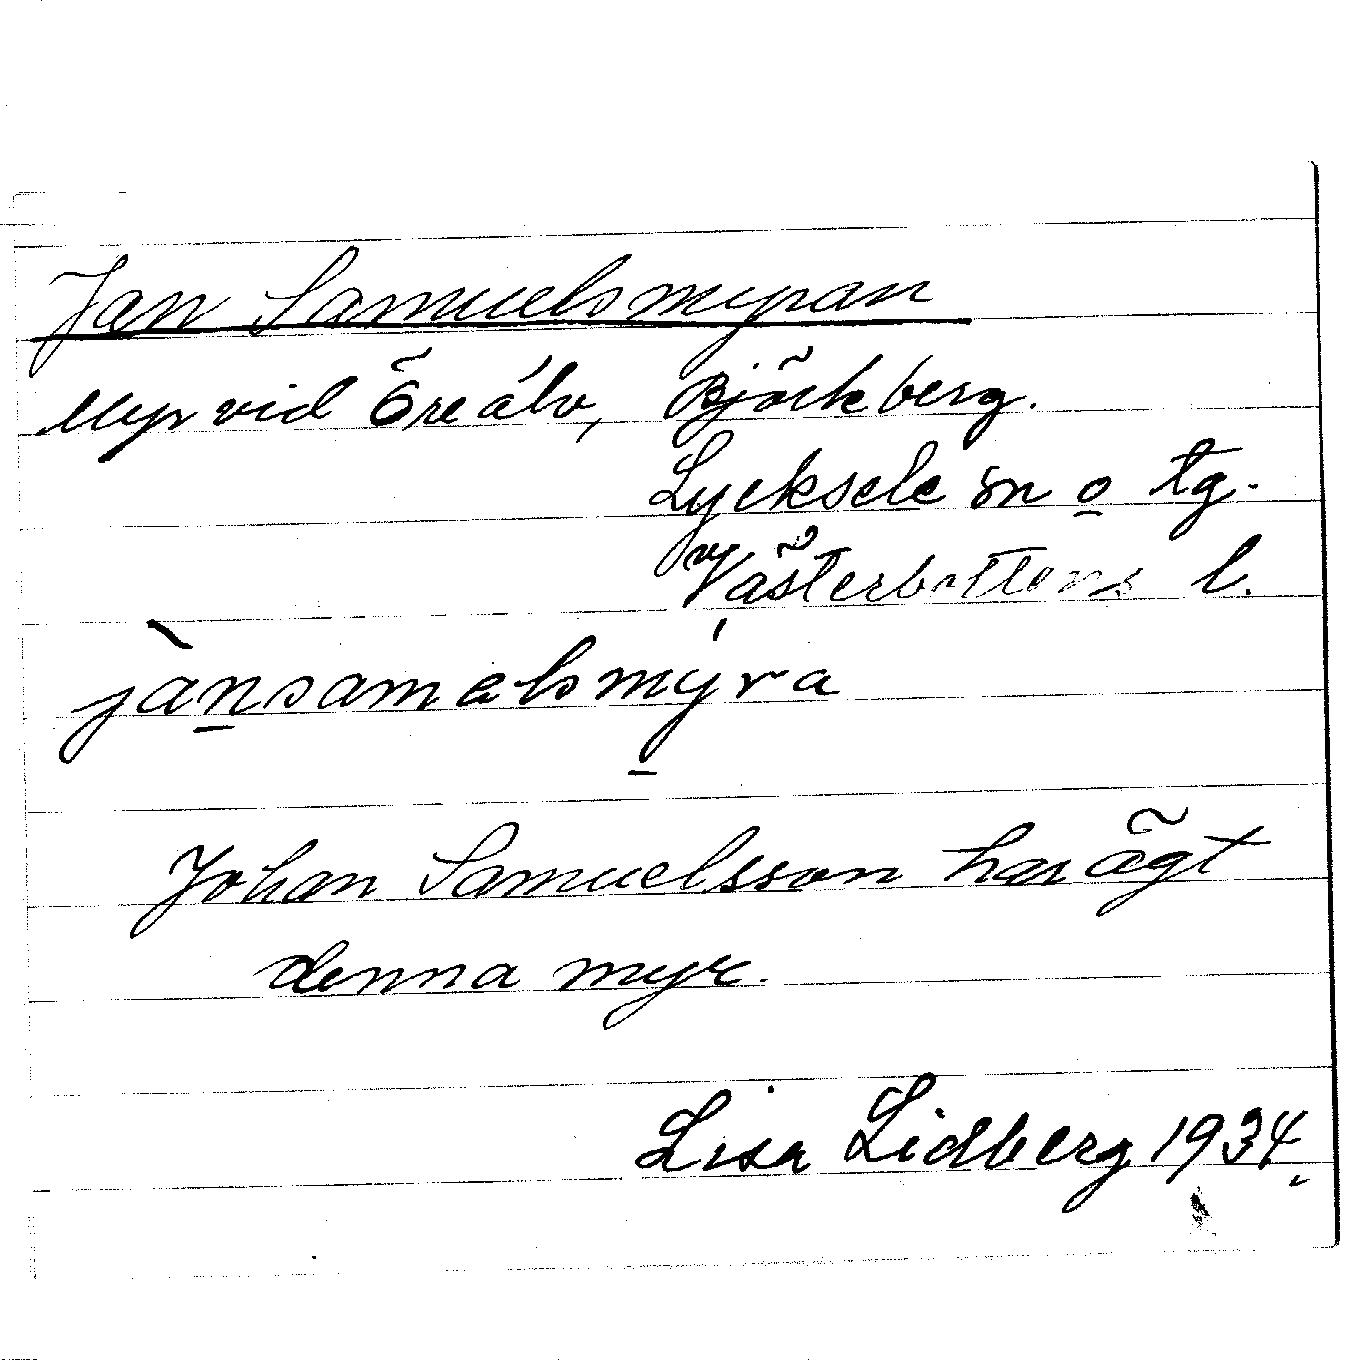 Jan Samuelsmyran
Myr vid Öreälv, Björkberg.
Lycksele sn o tg.
Västerbottens l.
jànsamelsmýra
Johan Samuelsson har ägt
denna myr.
Lisa Lidberg 1934.